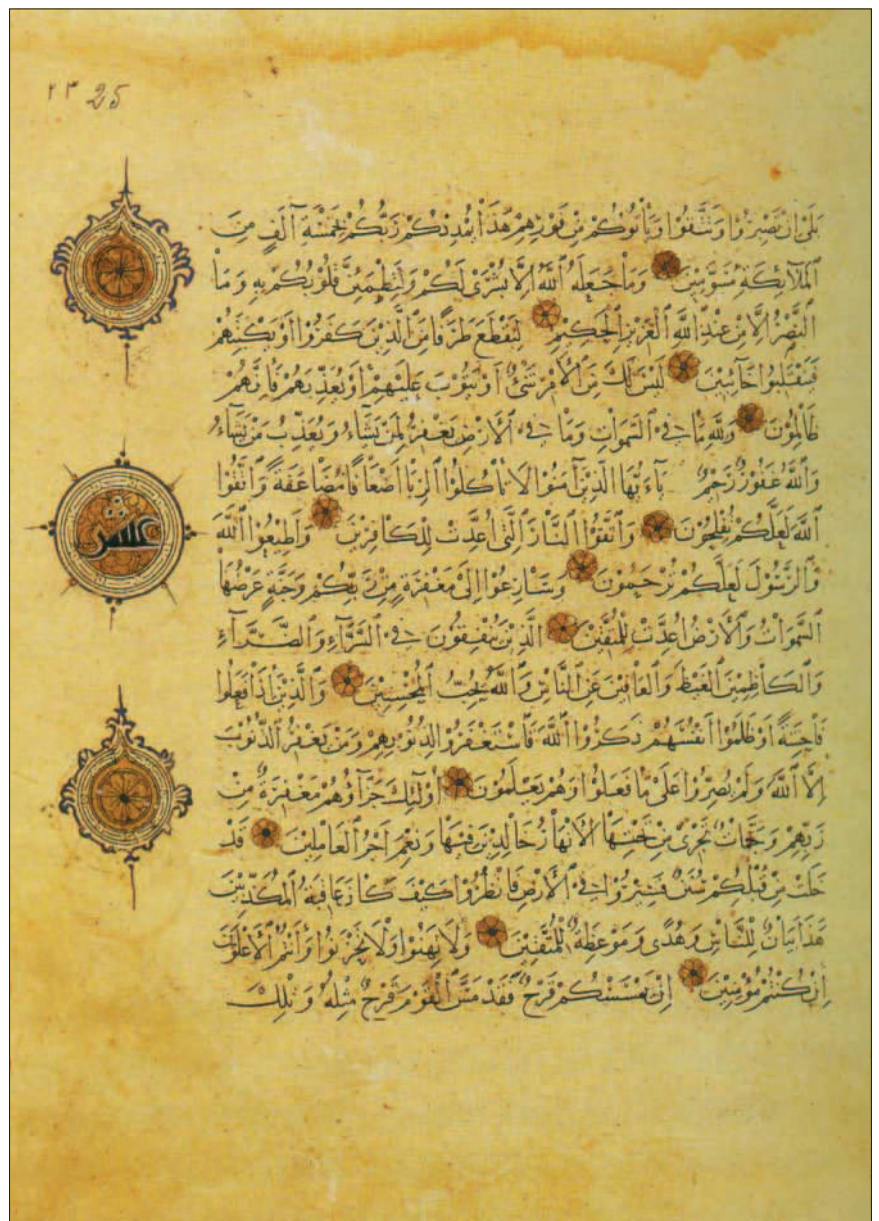 ٢٣ 25
بَلَىٰ إِنْ تَصْبِرُوا وَتَتَّقُوا وَيَأْتُوكُمْ مِنْ فَوْرِهِمْ هَذَا يُمْدِدْكُمْ رَبُّكُمْ بِخَمْسَةِ آلَافٍ مِنَ
الْمَلَائِكَةِ مُسَوِّمِينَ وَمَا جَعَلَهُ اللَّهُ إِلَّا بُشْرَىٰ لَكُمْ وَلِتَطْمَئِنَّ قُلُوبُكُمْ بِهِ وَمَا
النَّصْرُ إِلَّا مِنْ عِنْدِ اللَّهِ الْعَزِيزِ الْحَكِيمِ لِيَقْطَعَ طَرَفًا مِنَ الَّذِينَ كَفَرُوا أَوْ يَكْبِتَهُمْ
فَيَنْقَلِبُوا خَائِبِينَ لَيْسَ لَكَ مِنَ الْأَمْرِ شَيْءٌ أَوْ يَتُوبَ عَلَيْهِمْ أَوْ يُعَذِّبَهُمْ فَإِنَّهُمْ
ظَالِمُونَ وَلِلَّهِ مَا فِي السَّمَوَاتِ وَمَا فِي الْأَرْضِ يَغْفِرُ لِمَنْ يَشَاءُ وَيُعَذِّبُ مَنْ يَشَاءُ
وَاللَّهُ غَفُورٌ رَحِيمٌ يَا أَيُّهَا الَّذِينَ آمَنُوا لَا تَأْكُلُوا الرِّبَا أَضْعَافًا مُضَاعَفَةً وَاتَّقُوا
اللَّهَ لَعَلَّكُمْ تُفْلِحُونَ وَاتَّقُوا النَّارَ الَّتِي أُعِدَّتْ لِلْكَافِرِينَ وَأَطِيعُوا اللَّهَ
عشر
وَالرَّسُولَ لَعَلَّكُمْ تُرْحَمُونَ وَسَارِعُوا إِلَىٰ مَغْفِرَةٍ مِنْ رَبِّكُمْ وَجَنَّةٍ عَرْضُهَا
السَّمَوَاتُ وَالْأَرْضُ أُعِدَّتْ لِلْمُتَّقِينَ الَّذِينَ يُنْفِقُونَ فِي السَّرَّاءِ وَالضَّرَّاءِ
وَالْكَاظِمِينَ الْغَيْظَ وَالْعَافِينَ عَنِ النَّاسِ وَاللَّهُ يُحِبُّ الْمُحْسِنِينَ وَالَّذِينَ إِذَا فَعَلُوا
فَاحِشَةً أَوْ ظَلَمُوا أَنْفُسَهُمْ ذَكَرُوا اللَّهَ فَاسْتَغْفَرُوا لِذُنُوبِهِمْ وَمَنْ يَغْفِرُ الذُّنُوبَ
إِلَّا اللَّهُ وَلَمْ يُصِرُّوا عَلَىٰ مَا فَعَلُوا وَهُمْ يَعْلَمُونَ أُولَٰئِكَ جَزَاؤُهُمْ مَغْفِرَةٌ مِنْ
رَبِّهِمْ وَجَنَّاتٌ تَجْرِي مِنْ تَحْتِهَا الْأَنْهَارُ خَالِدِينَ فِيهَا وَنِعْمَ أَجْرُ الْعَامِلِينَ قَدْ
خَلَتْ مِنْ قَبْلِكُمْ سُنَنٌ فَسِيرُوا فِي الْأَرْضِ فَانْظُرُوا كَيْفَ كَانَ عَاقِبَةُ الْمُكَذِّبِينَ
هَذَا بَيَانٌ لِلنَّاسِ وَهُدًى وَمَوْعِظَةٌ لِلْمُتَّقِينَ وَلَا تَهِنُوا وَلَا تَحْزَنُوا وَأَنْتُمُ الْأَعْلَوْنَ
إِنْ كُنْتُمْ مُؤْمِنِينَ إِنْ يَمْسَسْكُمْ قَرْحٌ فَقَدْ مَسَّ الْقَوْمَ قَرْحٌ مِثْلُهُ وَتِلْكَ